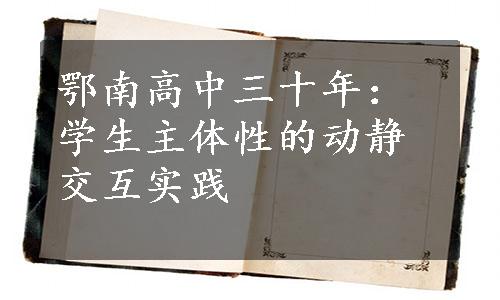 鄂南高中三十年：
学生主体性的动静
交互实践